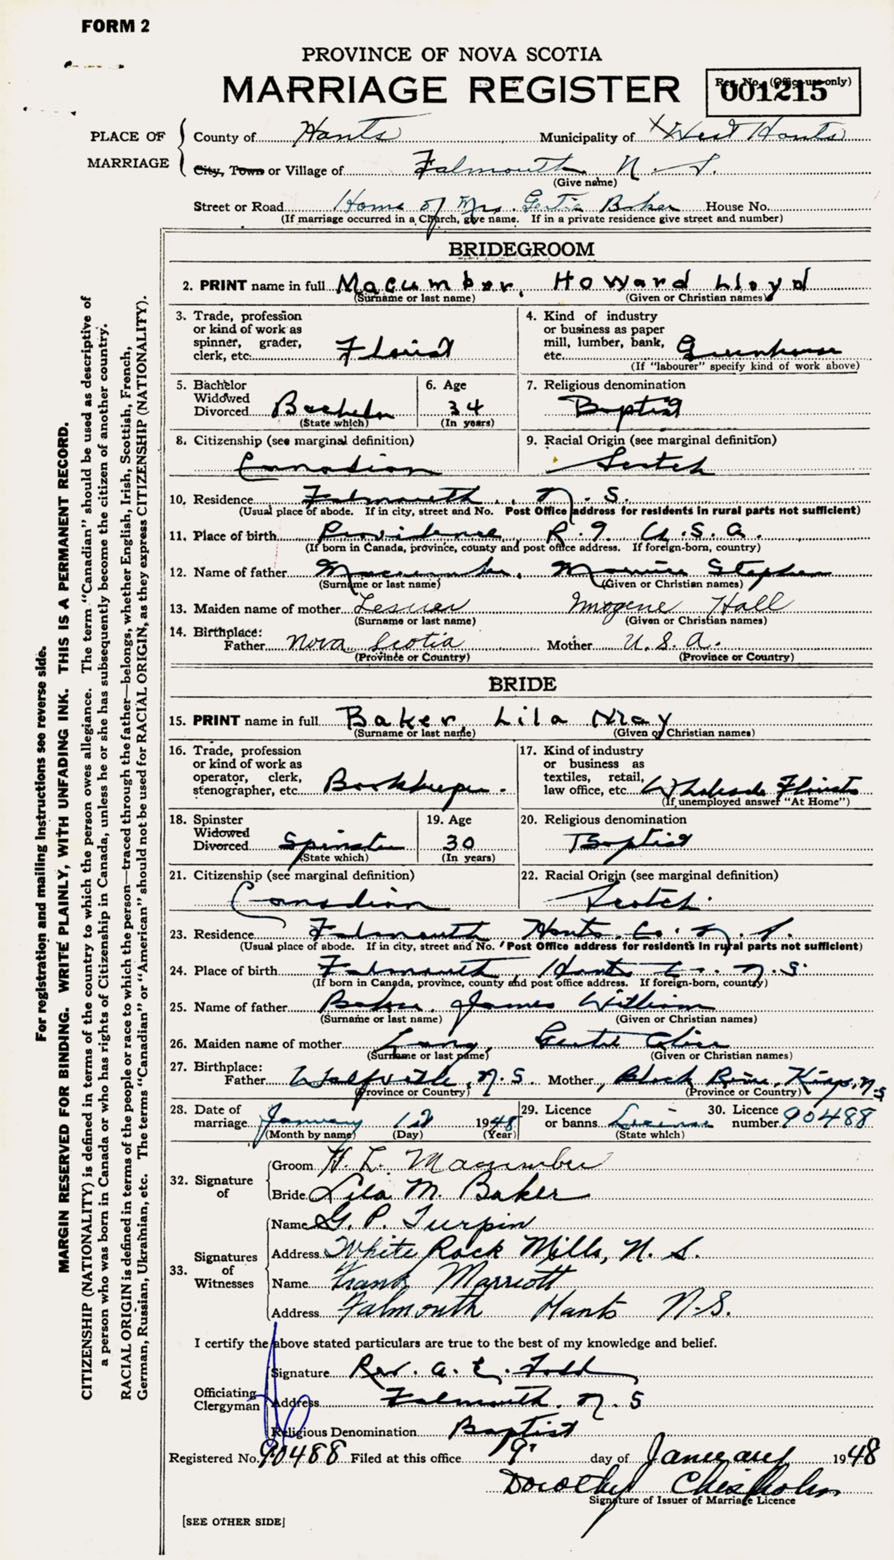 FORM 2
PROVINCE OF NOVA SCOTIA
MARRIAGE REGISTER
Reg. No. (Office use only)
001215
PLACE OF MARRIAGE
County of Hants Municipality of West Hants
City, Town or Village of Falmouth N. S.
(Give name)
Street or Road Home of Mrs. Gertie Baker House No.
(If marriage occurred in a Church, give name. If in a private residence give street and number)
BRIDEGROOM
2. PRINT name in full Macumber, Howard Lloyd
(Surname or last name) (Given or Christian names)
3. Trade, profession or kind of work as spinner, grader, clerk, etc. Florist
4. Kind of industry or business as paper mill, lumber, bank, etc. Greenhouse
(If "labourer" specify kind of work above)
5. Bachelor Widowed Divorced Bachelor
(State which)
6. Age 34
(In years)
7. Religious denomination Baptist
8. Citizenship (see marginal definition)
Canadian
9. Racial Origin (see marginal definition)
Scotch
10. Residence Falmouth, N. S.
(Usual place of abode. If in city, street and No. Post Office address for residents in rural parts not sufficient)
11. Place of birth Providence R. I. U.S.A.
(If born in Canada, province, county and post office address. If foreign-born, country)
12. Name of father Macumber, Stephen
(Surname or last name) (Given or Christian names)
13. Maiden name of mother Imogene Hall
(Surname or last name) (Given or Christian names)
14. Birthplace:
Father Nova Scotia Mother U. S. A.
(Province or Country) (Province or Country)
BRIDE
15. PRINT name in full Baker, Lila May
(Surname or last name) (Given or Christian names)
16. Trade, profession or kind of work as operator, clerk, stenographer, etc. Bookkeeper.
17. Kind of industry or business as textiles, retail, law office, etc. Wholesale Florists
(If unemployed answer "At Home")
18. Spinster Widowed Divorced Spinster
(State which)
19. Age 30
(In years)
20. Religious denomination Baptist
21. Citizenship (see marginal definition)
Canadian
22. Racial Origin (see marginal definition)
Scotch
23. Residence Falmouth Hants Co. N. S.
(Usual place of abode. If in city, street and No. Post Office address for residents in rural parts not sufficient)
24. Place of birth Falmouth, Hants Co. N. S.
(If born in Canada, province, county and post office address. If foreign-born, country)
25. Name of father Baker James William
(Surname or last name) (Given or Christian names)
26. Maiden name of mother
(Surname or last name) (Given or Christian names)
27. Birthplace:
Father Wolfville, N.S Mother Black River, Kings, N.S
(Province or Country) (Province or Country)
28. Date of marriage January 12 1948
(Month by name) (Day) (Year)
29. Licence or banns License
(State which)
30. Licence number 90488
32. Signature of
Groom H. L. Macumber
Bride Lila M. Baker
33. Signatures of Witnesses
Name G. P. Turpin
Address White Rock Mills, N. S.
Name Frank Marriott
Address Falmouth Hants N.S.
I certify the above stated particulars are true to the best of my knowledge and belief.
Officiating Clergyman
Signature Rev. A. E. Todd
Address Falmouth. N. S
Religious Denomination Baptist
Registered No. 90488 Filed at this office 19 day of January 1948
Dorothy Chisholm
Signature of Issuer of Marriage Licence
[SEE OTHER SIDE]
For registration and mailing instructions see reverse side.
MARGIN RESERVED FOR BINDING. WRITE PLAINLY, WITH UNFADING INK. THIS IS A PERMANENT RECORD.
CITIZENSHIP (NATIONALITY) is defined in terms of the country to which the person owes allegiance. The term "Canadian" should be used as descriptive of
a person who was born in Canada or who has rights of Citizenship in Canada, unless he or she has subsequently become the citizen of another country.
RACIAL ORIGIN is defined in terms of the people or race to which the person—traced through the father—belongs, whether English, Irish, Scottish, French,
German, Russian, Ukrainian, etc. The terms "Canadian" or "American" should not be used for RACIAL ORIGIN, as they express CITIZENSHIP (NATIONALITY).